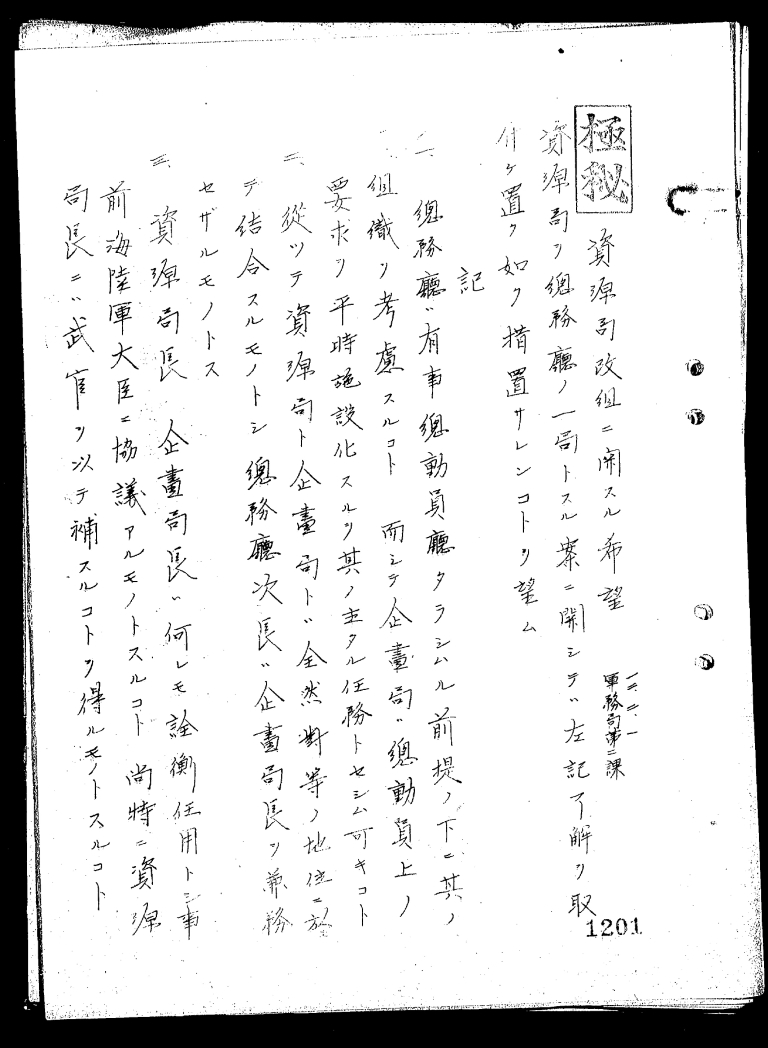 極秘
資源局改組ニ関スル希望
一二、二、一
軍務局第二課
資源局ヲ總務廳ノ一局トスル案ニ関シテハ左記了解ヲ取
付ケ置ク如ク措置サレンコトヲ望ム
記
一、總務廳ハ有事總動員廳タラシムル前提ノ下ニ其ノ
組織ヲ考慮スルコト 而シテ企畫局ハ總動員上ノ
要求ヲ平時施設化スルヲ其ノ主タル任務トセシム可キコト
二、從ツテ資源局ト企畫局トハ全然対等ノ地位ニ於
テ結合スルモノトシ總務廳次長ハ企畫局長ヲ兼務
セザルモノトス
三、資源局長 企畫局長ハ何レモ詮衡任用トシ事
前海陸軍大臣ニ協議アルモノトスルコト 尚特ニ資源
局長ニハ武官ヲ以テ補スルコトヲ得ルモノトスルコト
1201